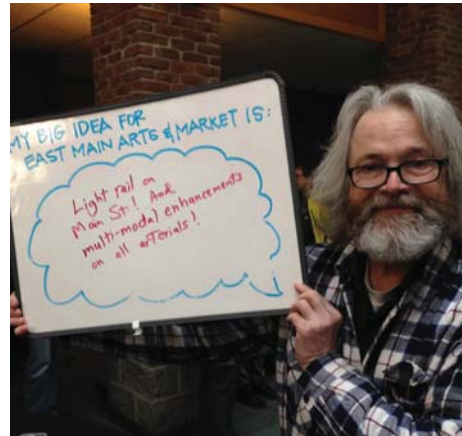 MY BIG IDEA FOR
EAST MAIN ARTS & MARKET IS:
Light rail on
Main St! And
multi-modal enhancements
on all arTerials!